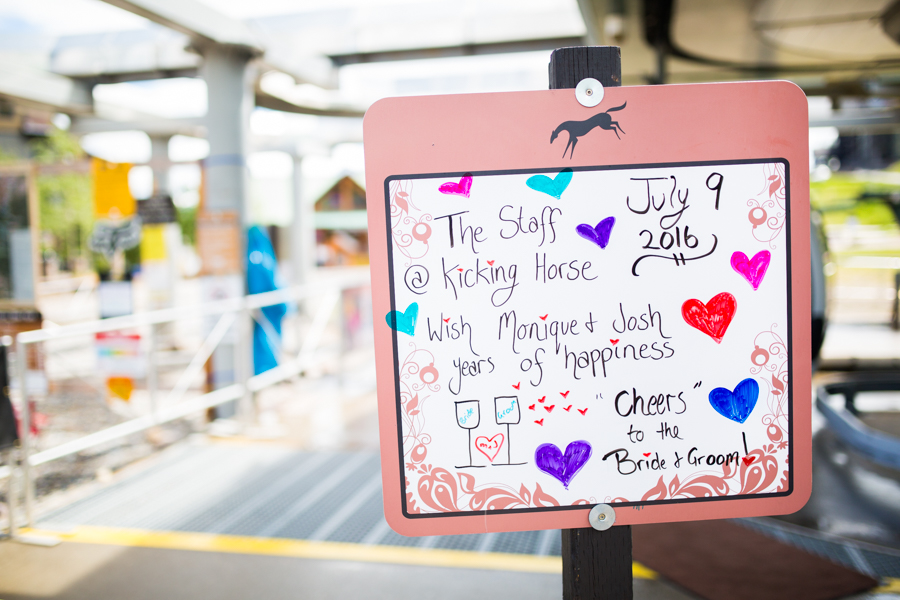 The Staff
July 9
2016
@ Kicking Horse
Wish Monique & Josh
years of happiness
Bride
Groom
M&J
"Cheers"
to the
Bride & Groom!